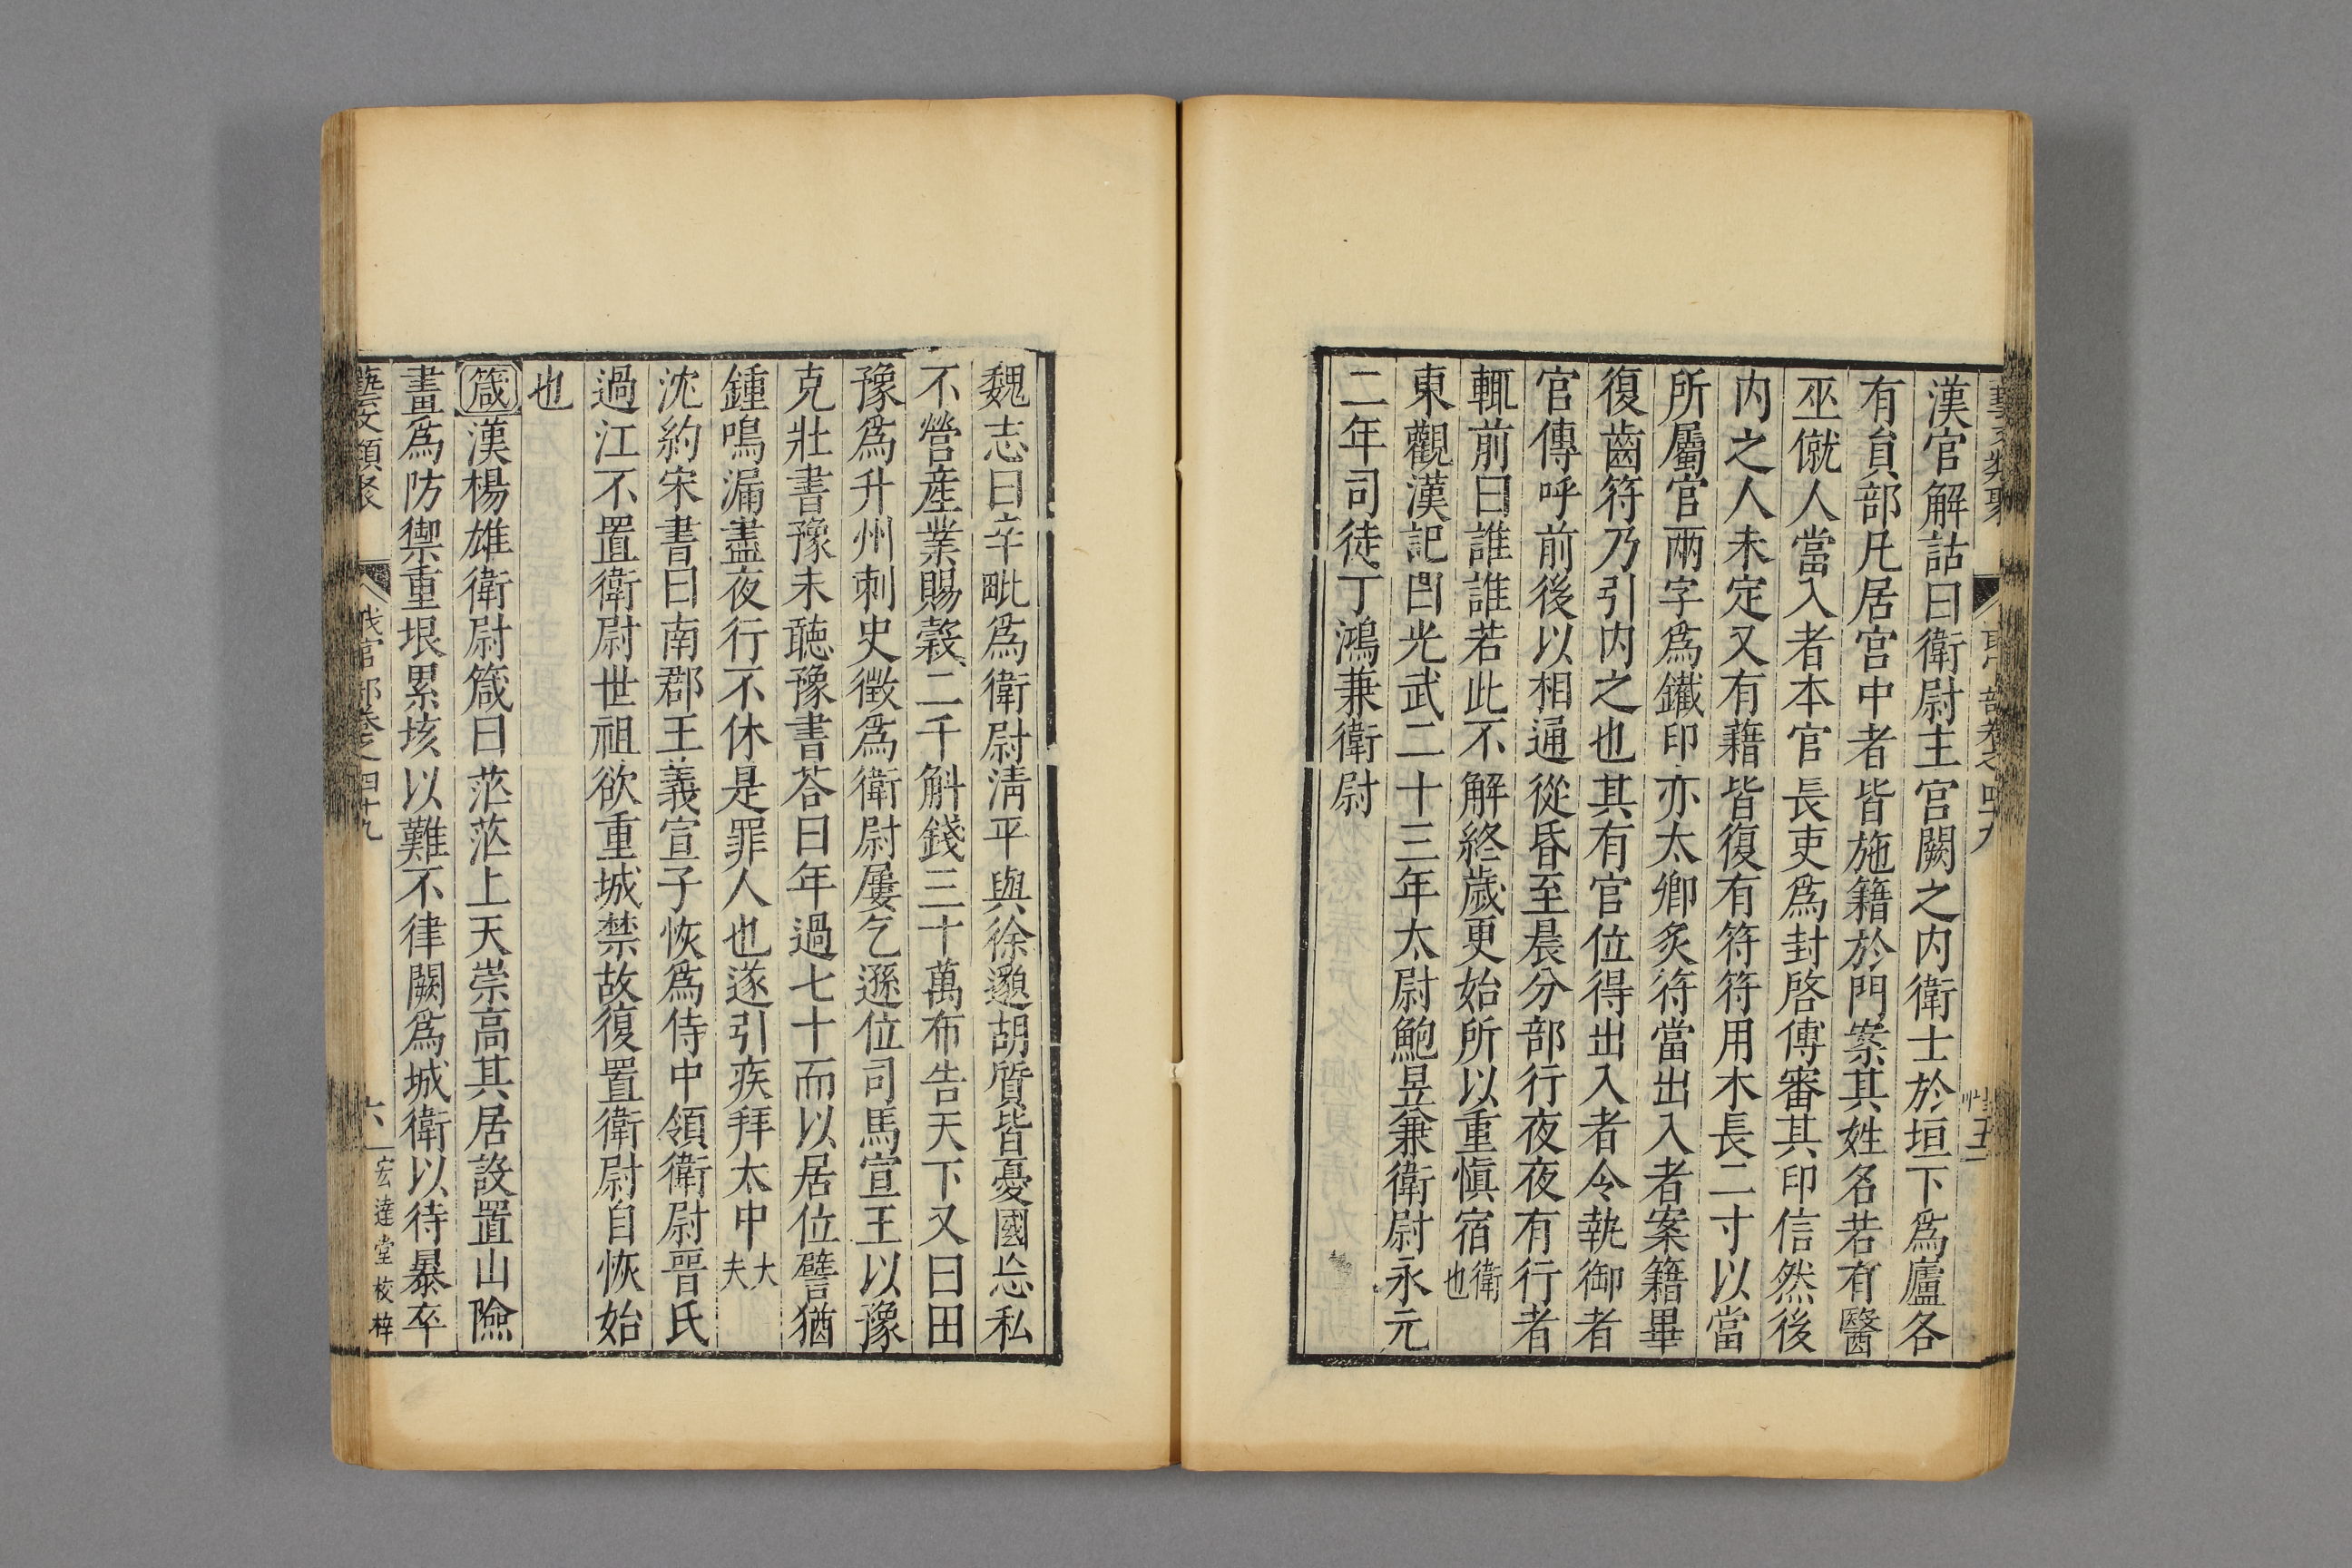 漢官解詁曰衛尉主宮闕之内衛士於垣下爲廬各
有負部凡居宮中者皆施籍於門案其姓名若有醫
巫僦人當入者本官長吏爲封啓傳審其印信然後
内之人未定又有藉皆復有符符用木長二寸以當
所屬官兩字爲鐵印亦太卿炙符當出入者案籍畢
復齒符乃引内之也其有官位得出入者令執御者
官傳呼前後以相通從昏至晨分部行夜夜有行者
輒前曰誰誰若此不解終歲更始所以重慎宿衛也
東觀漢記曰光武二十三年太尉鮑昱兼衛尉永元
二年司徒丁鴻兼衛尉
魏志曰辛毗爲衛尉淸平與徐邈胡質皆憂國忘私
不營産業賜穀二千斛錢三十萬布告天下又曰田
豫爲升州刺史徵爲衛尉屢乞遜位司馬宣王以豫
克壯書豫未聽豫書荅曰年過七十而以居位譬猶
鍾鳴漏盡夜行不休是罪人也遂引疾拜太中大夫
沈約宋書曰南郡王義宣子恢爲侍中領衛尉晉氏
過江不置衛尉世祖欲重城禁故復置衛尉自恢始
也
箴漢楊雄衛尉箴曰茫茫上天崇高其居設置山險
畫爲防禦重垠累垓以難不律闕爲城衛以待暴卒
藝文類聚 職官部卷之四十九 六 宏達堂校梓